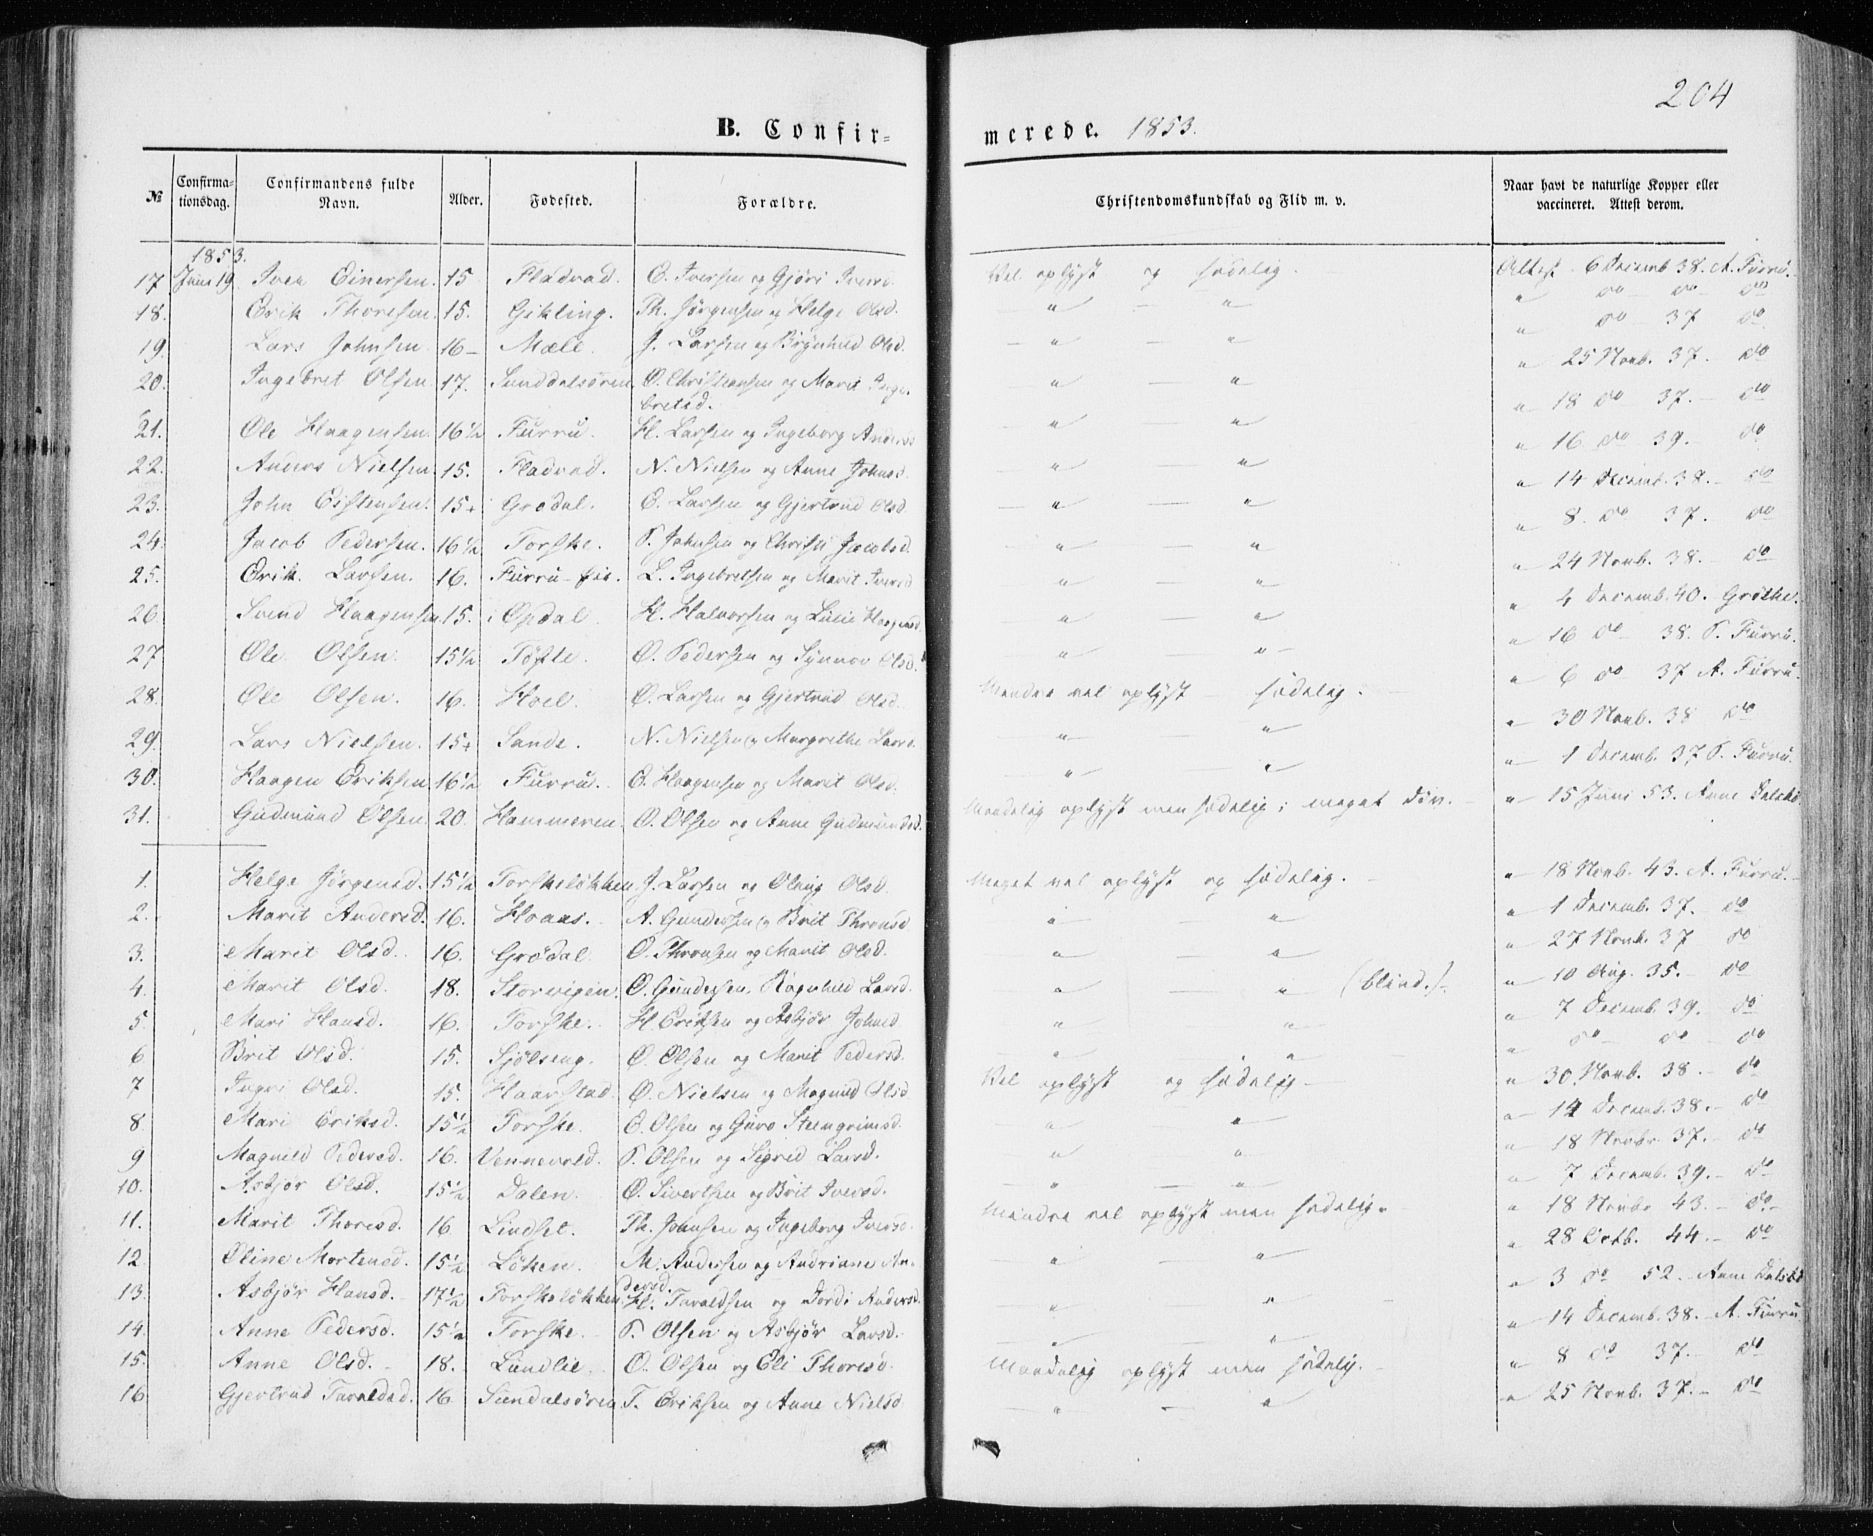 204
B. Confir-
merede. 1853.
№ Confirma-tionsdag. Confirmandens fulde Navn. Alder. Fødested. Forældre. Christendomskundskab og Flid m. v. Naar havt de naturlige Kopper eller vaccineret. Attest derom.
1853.
17 Juni 19 Iver Einersen 15 Fladvad. E. Iversen og Gjøri Iversd. Vel oplyst og sædelig. Attest 6 Decemb 38. A. Furru.
18. Erik Thoresen. 15. Gikling. Th. Jørgensen og Helge Olsd. " — " " do — do — do
19. Lars Johnsen. 16 — Mæle. J. Larsen og Brynhild Olsd. — " — " " do — 37 do
20. Ingebret Olsen 17. Sunddalsøren O. Christensen og Marit Inge- — " — " " 25 Novb. 37. do
bretsd.
21. Ole Haagensen. 16½ Furru. H. Larsen og Ingeborg Andersd — " — " " 18 do 37. — do
22. Anders Nielsen. 15. Fladvad. N. Nielsen og Anne Johnsd. — " — " " 16 do 39. — do
23. John Eistensen. 15+ Grødal. E. Larsen og Gjertrud Olsd. — " — " " 14 Decemb. 38. — do
24. Jacob Pedersen. 16½ Torske. P. Johnsen og Christi Jacobsd. — " — " " 8. do 37. do
25. Erik Larsen. 16. Furru- L. Ingebretsen og Marit Iversd — " — " " 24 Novb. 38. — do
26 Svend Haagensen 15. Opdal. H. Halvorsen og Haagensd. — " — " " 4 Decemb. 40. Grøthe.
27 Ole Olsen. 15½ Tøfte. O. Pedersen og Synnov Olsd. — " — " " 16 do — 38. P. Furru.
28. Ole Olsen. 16. Hoel. O. Larsen og Gjertrud Olsd. Mindre vel oplyst — sædelig. " 6 do — 37 A. Furru.
29. Lars Nielsen. 15+ Sande. N. Nielsen og Margrethe Larsd. — " — " " 30 Novb. 38 do
30. Haagen Eriksen 16½ Furru. E. Haagensen og Marit Olsd. — " — " " 1 Decemb. 37 P. Furru.
31. Gudmund Olsen 20. Hammeren. O. Olsen og Anne Gudmundsd. Maadelig oplyst men sædelig; meget døv. " 15 Juni 53. Anne
1. Helge Jørgensd. 15½ Torskeløkken J. Larsen og Olaug Olsd. Meget vel oplyst og sædelig. " 18 Novb. 43. A. Furru. —
2. Marit Andersd. 16. Hoaas. A. Gundersen og Brit Thronsd — " — " " 1 Decemb. 37. — do
3. Marit Olsd. 16. Grødal. O. Thronsen og Marit Olsd. — " — " " 27 Novb. 37 do
4. Marit Olsd. 18. Storvigen. O. Gundersen. Ragnhild Larsd. — " — " (blind.) " 10 Aug. 35. — do
5. Mari Hansd. 16. Torske. H. Eriksen og Asbjør Johnsd — " — " " 7 Decemb. 39. — do
6 Brit Olsd. 15. Sjølseng. O. Olsen og Marit Pedersd. — " — " " do — do — do
7 Ingri Olsd. 15. Haarstad. O. Nielsen og Magnild Olsd Vel oplyst og sædelig — " 30. Novb. 38. — do
8 Mari Eriksd. 15½ Torske. E. Olsen og Guro Steengrimsd. — " — " " 14 Decemb. 38. — do
9 Magnild Pedersd. 16. Vennevold. P. Olsen og Sigrid Larsd. — " — " " 18 Novbr. 37. — do
10. Asbjør Olsd. 15½ Dalen. O. Sivertsen og Brit Iversd. — " — " " 7 Decemb. 39. — do
11. Marit Thoresd. 16 Lindset. Th. Johnsen og Ingeborg Iversd. Mindre vel oplyst men sædelig. " 18 Novbr 43. — do —
12 Oline Mortensd. 15½ Løken. M. Andersen og Andriane An- — " — " " 28 Octb. 44. — do
dersd.
13. Asbjør Hansd. 17½ Torskeløkken H. Taraldsen og Dordi Andersd. — " — " " 3 do 52. Anne
14. Anne Pedersd. 15½ Torske. P. Olsen og Asbjør Larsd. — " — " " 14 Decemb. 38. — A. Furru
15. Anne Olsd. 18. Lundlie. O. Olsen og Eli Thoresd. Maadelig oplyst men sædelig. " 8 do 37. — do
16. Gjertrud Taraldsd. 16 Sundalsøren T. Eriksen og Anne Nielsd — " — " " 25 Novb. 37. — do